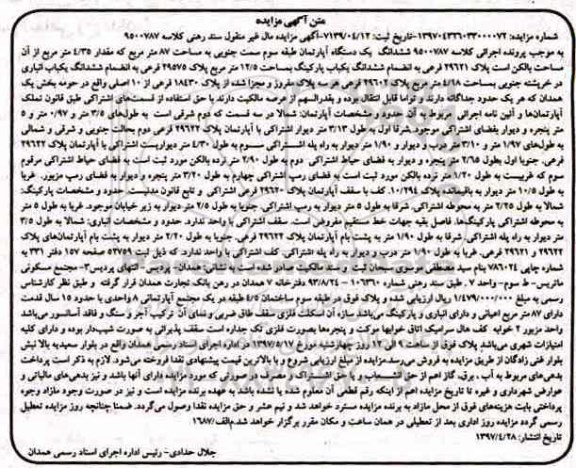 متن آگهی مزایده
شماره مزایده: ۱۳۹۷۰۴۳۲۶۰۳۳۰۰۰۰۷۲-تاریخ ثبت: ۷۱۳۹/۰۴/۱۲-آگهی مزایده مال غیر منقول سند رهنی کلاسه ۹۵۰۰۷۸۷
به موجب پرونده اجرائی کلاسه ۹۵۰۰۷۸۷ ششدانگ یک دستگاه آپارتمان طبقه سوم سمت جنوبی به مساحت ۸۷ متر مربع که مقدار ۴/۳۵ متر مربع از آن
مساحت بالکن است پلاک ۲۹۶۲۱ فرعی به انضمام ششدانگ یکباب پارکینگ بمساحت ۱۲/۵ متر مربع پلاک ۲۹۵۷۵ فرعی به انضمام ششدانگ یکباب انباری
در خرپشته جنوبی بمساحت ۴/۱۸ متر مربع پلاک ۲۹۶۰۲ فرعی هر سه پلاک مفروز و مجزا شده از پلاک ۱۸۴۳۰ فرعی از ۱۰ اصلی واقع در حومه بخش یک
همدان که هر یک حدود جداگانه دارند و توأما قابل انتقال بوده و بقدرالسهم از عرصه مالکیت دارند با حق استفاده از قسمت‌های اشتراکی طبق قانون تملک
آپارتمان‌ها و آئین نامه اجرائی مربوطه و آن حدود و مشخصات آپارتمان: شمالا در سه قسمت که دوم شرقی است به طول‌های ۳/۵ متر و ۰/۹۷ متر و ۵
متر پنجره و دیوار بفضای اشتراکی موجود. شرقا اول به طول ۳/۱۳ متر دیوار اشتراکی با آپارتمان پلاک ۲۹۶۲۲ فرعی دوم بحالت جنوبی و شرقی و شمالی
به طول‌های ۱/۹۷ متر و ۳/۱۰ متر درب و دیوار و ۱/۹۰ متر دیوار به راه پله اشتراکی سوم به طول ۴/۳۰ متر دیواریست اشتراکی با آپارتمان پلاک ۲۹۶۲۲
فرعی. جنوبا اول بطول ۲/۶۵ متر پنجره و دیوار به فضای حیاط اشتراکی دوم به طول ۲/۹۰ متر نرده بالکن مورد ثبت است به فضای حیاط اشتراکی مرقوم
سوم که غربیست به طول ۱/۲۰ متر نرده بالکن مورد ثبت است به فضای رمپ اشتراکی چهارم به طول ۳/۲۰ متر پنجره و دیوار به فضای رمپ مزبور. غربا
به طول ۱۰/۵ متر دیوار به باقیمانده پلاک ۱۰/۲۹۴. کف با سقف آپارتمان پلاک ۲۹۶۲۰ فرعی اشتراکی و تابع قانون مدنیست. حدود و مشخصات پارکینگ:
شمالا به طول ۲/۲۵ متر به محوطه اشتراکی. شرقا به طول ۵ متر به رمپ اشتراکی. جنوبا به طول ۲/۵ متر دیوار به زیر خیابان موجود. غربا به طول ۵ متر
به محوطه اشتراکی پارکینگ‌ها. فاصل بقیه جهات خط مستقیم مفروض است. سقف اشتراکی با واحد ندارد. حدود و مشخصات انباری: شمالا به طول ۳/۵
متر دیوار به راه پله اشتراکی. شرقا به طول ۱/۹۰ متر به پشت بام آپارتمان پلاک ۲۹۶۲۲ فرعی. جنوبا به طول ۲/۲۰ متر دیوار به پشت بام آپارتمان‌های پلاک
۲۹۶۲۲ و ۲۹۶۲۱ فرعی. غربا به طول ۱/۹۰ متر درب و دیوار به راه پله اشتراکی. کف اشتراکی با واحد ندارد. که ذیل ثبت ۵۲۷۵۹ صفحه ۱۵۷ دفتر ۳۳۱ به
شماره چاپی ۷۸۶۰۲۴ بنام سید مصطفی موسوی سبحان ثبت و سند مالکیت صادر شده است به نشانی همدان- پردیس- انتهای پردیس۳- مجتمع مسکونی
ماتریس- ط سوم- واحد ۷. طبق سند رهنی شماره ۱۰۶۳۶۰-۹۳/۸/۲۴ دفترخانه ۷ همدان در رهن بانک تجارت همدان قرار گرفته و طبق نظر کارشناس
رسمی به مبلغ ۱/۴۷۹/۰۰۰/۰۰۰ ریال ارزیابی شده و پلاک فوق در طبقه سوم ساختمان ۴/۵ طبقه در یک مجتمع آپارتمانی ۸ واحدی با حدود ۱۵ سال قدمت
دارای ۸۷ متر مربع اعیانی و دارای انباری و پارکینگ می‌باشد سازه آن اسکلت فلزی سقف طاق ضربی و نمای آن ترکیب آجر و سنگ و فاقد آسانسور می‌باشد
واحد مزبور ۲ خوابه کف هال سرامیک اتاق خوابها موکت و پنجره‌ها بصورت فلزی تک جداره است سقف پذیرائی به صورت شیب‌دار بوده و دارای کلیه
امتیازات شهری می‌باشد پلاک فوق از ساعت ۹ الی ۱۲ روز چهارشنبه مورخ ۱۳۹۷/۰۵/۱۷ در اداره اجرای اسناد رسمی همدان واقع در بلوار سعیدیه بالا نبش
بلوار فنی زادگان از طریق مزایده به فروش می‌رسد. مزایده از مبلغ ارزیابی شروع و با بالاترین قیمت پیشنهادی نقدا فروخته می‌شود. لازم به ذکر است پرداخت
بدهی‌های مربوط به آب، برق، گاز اعم از حق انشعاب و یا حق اشتراک و مصرف در صورتی که مورد مزایده دارای آنها باشد و نیز بدهی‌های مالیاتی و
عوارض شهرداری و غیره تا تاریخ مزایده اعم از اینکه رقم قطعی آن معلوم شده یا نشده باشد به عهده برنده مزایده است و نیز در صورت وجود مازاد وجوه
پرداختی بابت هزینه‌های فوق از محل مازاد به برنده مزایده مسترد خواهد شد و نیم عشر و حق مزایده نقدا وصول می‌گردد. ضمنا چنانچه روز مزایده تعطیل
رسمی گردد مزایده روز اداری بعد از تعطیلی در همان ساعت و مکان مقرر برگزار خواهد شد. م‌الف/۱۶۸۷
تاریخ انتشار: ۱۳۹۷/۴/۲۸
جلال حدادی- رئیس اداره اجرای اسناد رسمی همدان